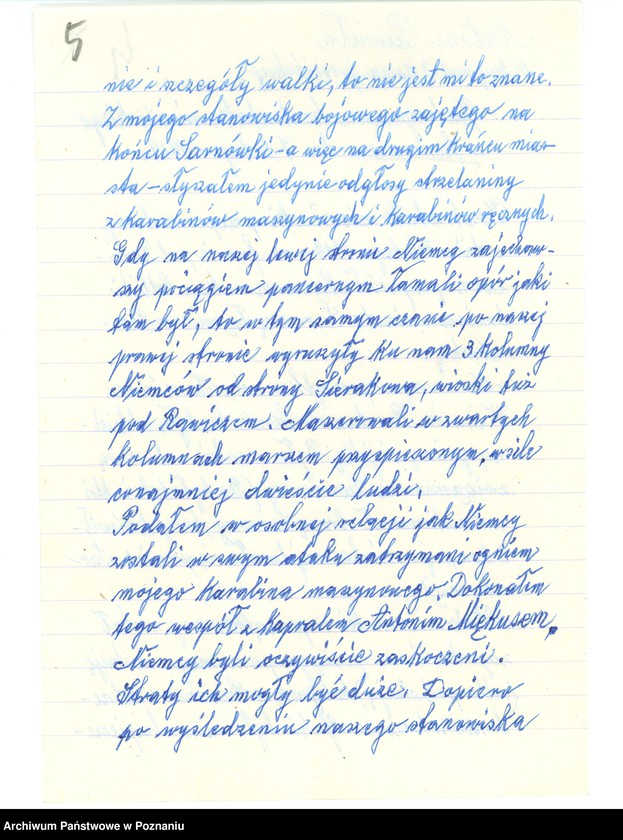 5
nie i szczegóły walki, to nie jest mi to znane.
Z mojego stanowiska bojowego zajętego na
końcu Sarnówki – a więc na drugim krańcu mia-
sta – słyszałem jedynie odgłosy strzelaniny
z karabinów maszynowych i karabinów ręcznych.
Gdy na naszej lewej stronie Niemcy zajechaw-
szy pociągiem pancernym łamali opór jaki
tam był, to w tym samym czasie po naszej
prawej stronie wyruszyły ku nam 3 kolumny
Niemców od strony Sierakowa, wioski tuż
pod Rawiczem. Maszerowali w zwartych
kolumnach marszem przyspieszonym, w sile
conajmniej dwieście ludzi.
Podałem w osobnej relacji jak Niemcy
zostali w swym ataku zatrzymani ogniem
mojego karabina maszynowego. Dokonałem
tego wespół z kapralem Antonim Miękusem.
Niemcy byli oczywiście zaskoczeni.
Straty ich mogły być duże. Dopiero
po wyśledzeniu naszego stanowiska
Archiwum Państwowe w Poznaniu